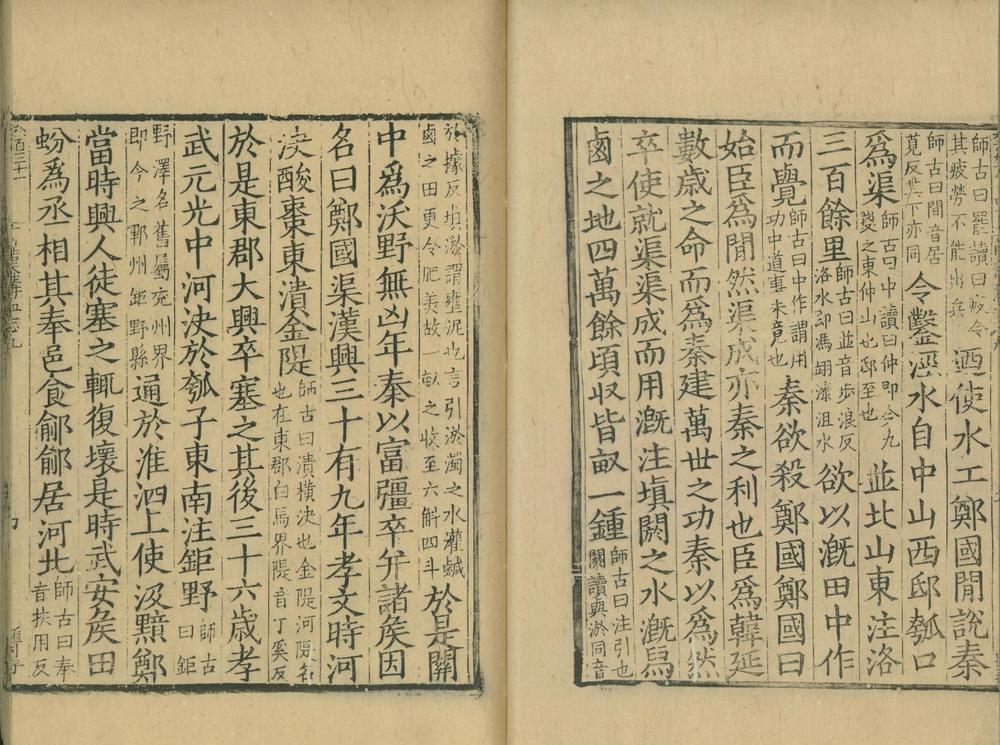 師古曰罷讀曰疲令其疲勞不能出兵迺使水工鄭國閒說秦
師古曰閒音居莧反其下亦同令鑿涇水自中山西邸瓠口
爲渠師古曰中讀曰仲即今九嵕之東仲山也邸至也並北山東注洛
三百餘里師古曰並音步浪反洛水即馮翊漆沮水欲以溉田中作
而覺師古曰中作謂用功中道事未竟也秦欲殺鄭國鄭國曰
始臣爲閒然渠成亦秦之利也臣爲韓延
數歲之命而爲秦建萬世之功秦以爲然
卒使就渠渠成而用溉注塡閼之水溉舄
鹵之地四萬餘頃收皆畝一鍾師古曰注引也閼讀與淤同音
於據反塡淤謂壅泥也言引淤濁之水灌鹹鹵之田更令肥美故一畝之收至六斛四斗於是關
中爲沃野無凶年秦以富彊卒并諸侯因
名曰鄭國渠漢興三十有九年孝文時河
決酸棗東潰金隄師古曰潰橫決也金隄河隄名也在東郡白馬界隄音丁奚反
於是東郡大興卒塞之其後三十六歲孝
武元光中河決於瓠子東南注鉅野師古曰鉅
野澤名舊屬兗州界即今之鄆州鉅野縣通於淮泗上使汲黯鄭
當時興人徒塞之輒復壞是時武安侯田
蚡爲丞相其奉邑食鄃鄃居河北師古曰奉音扶用反